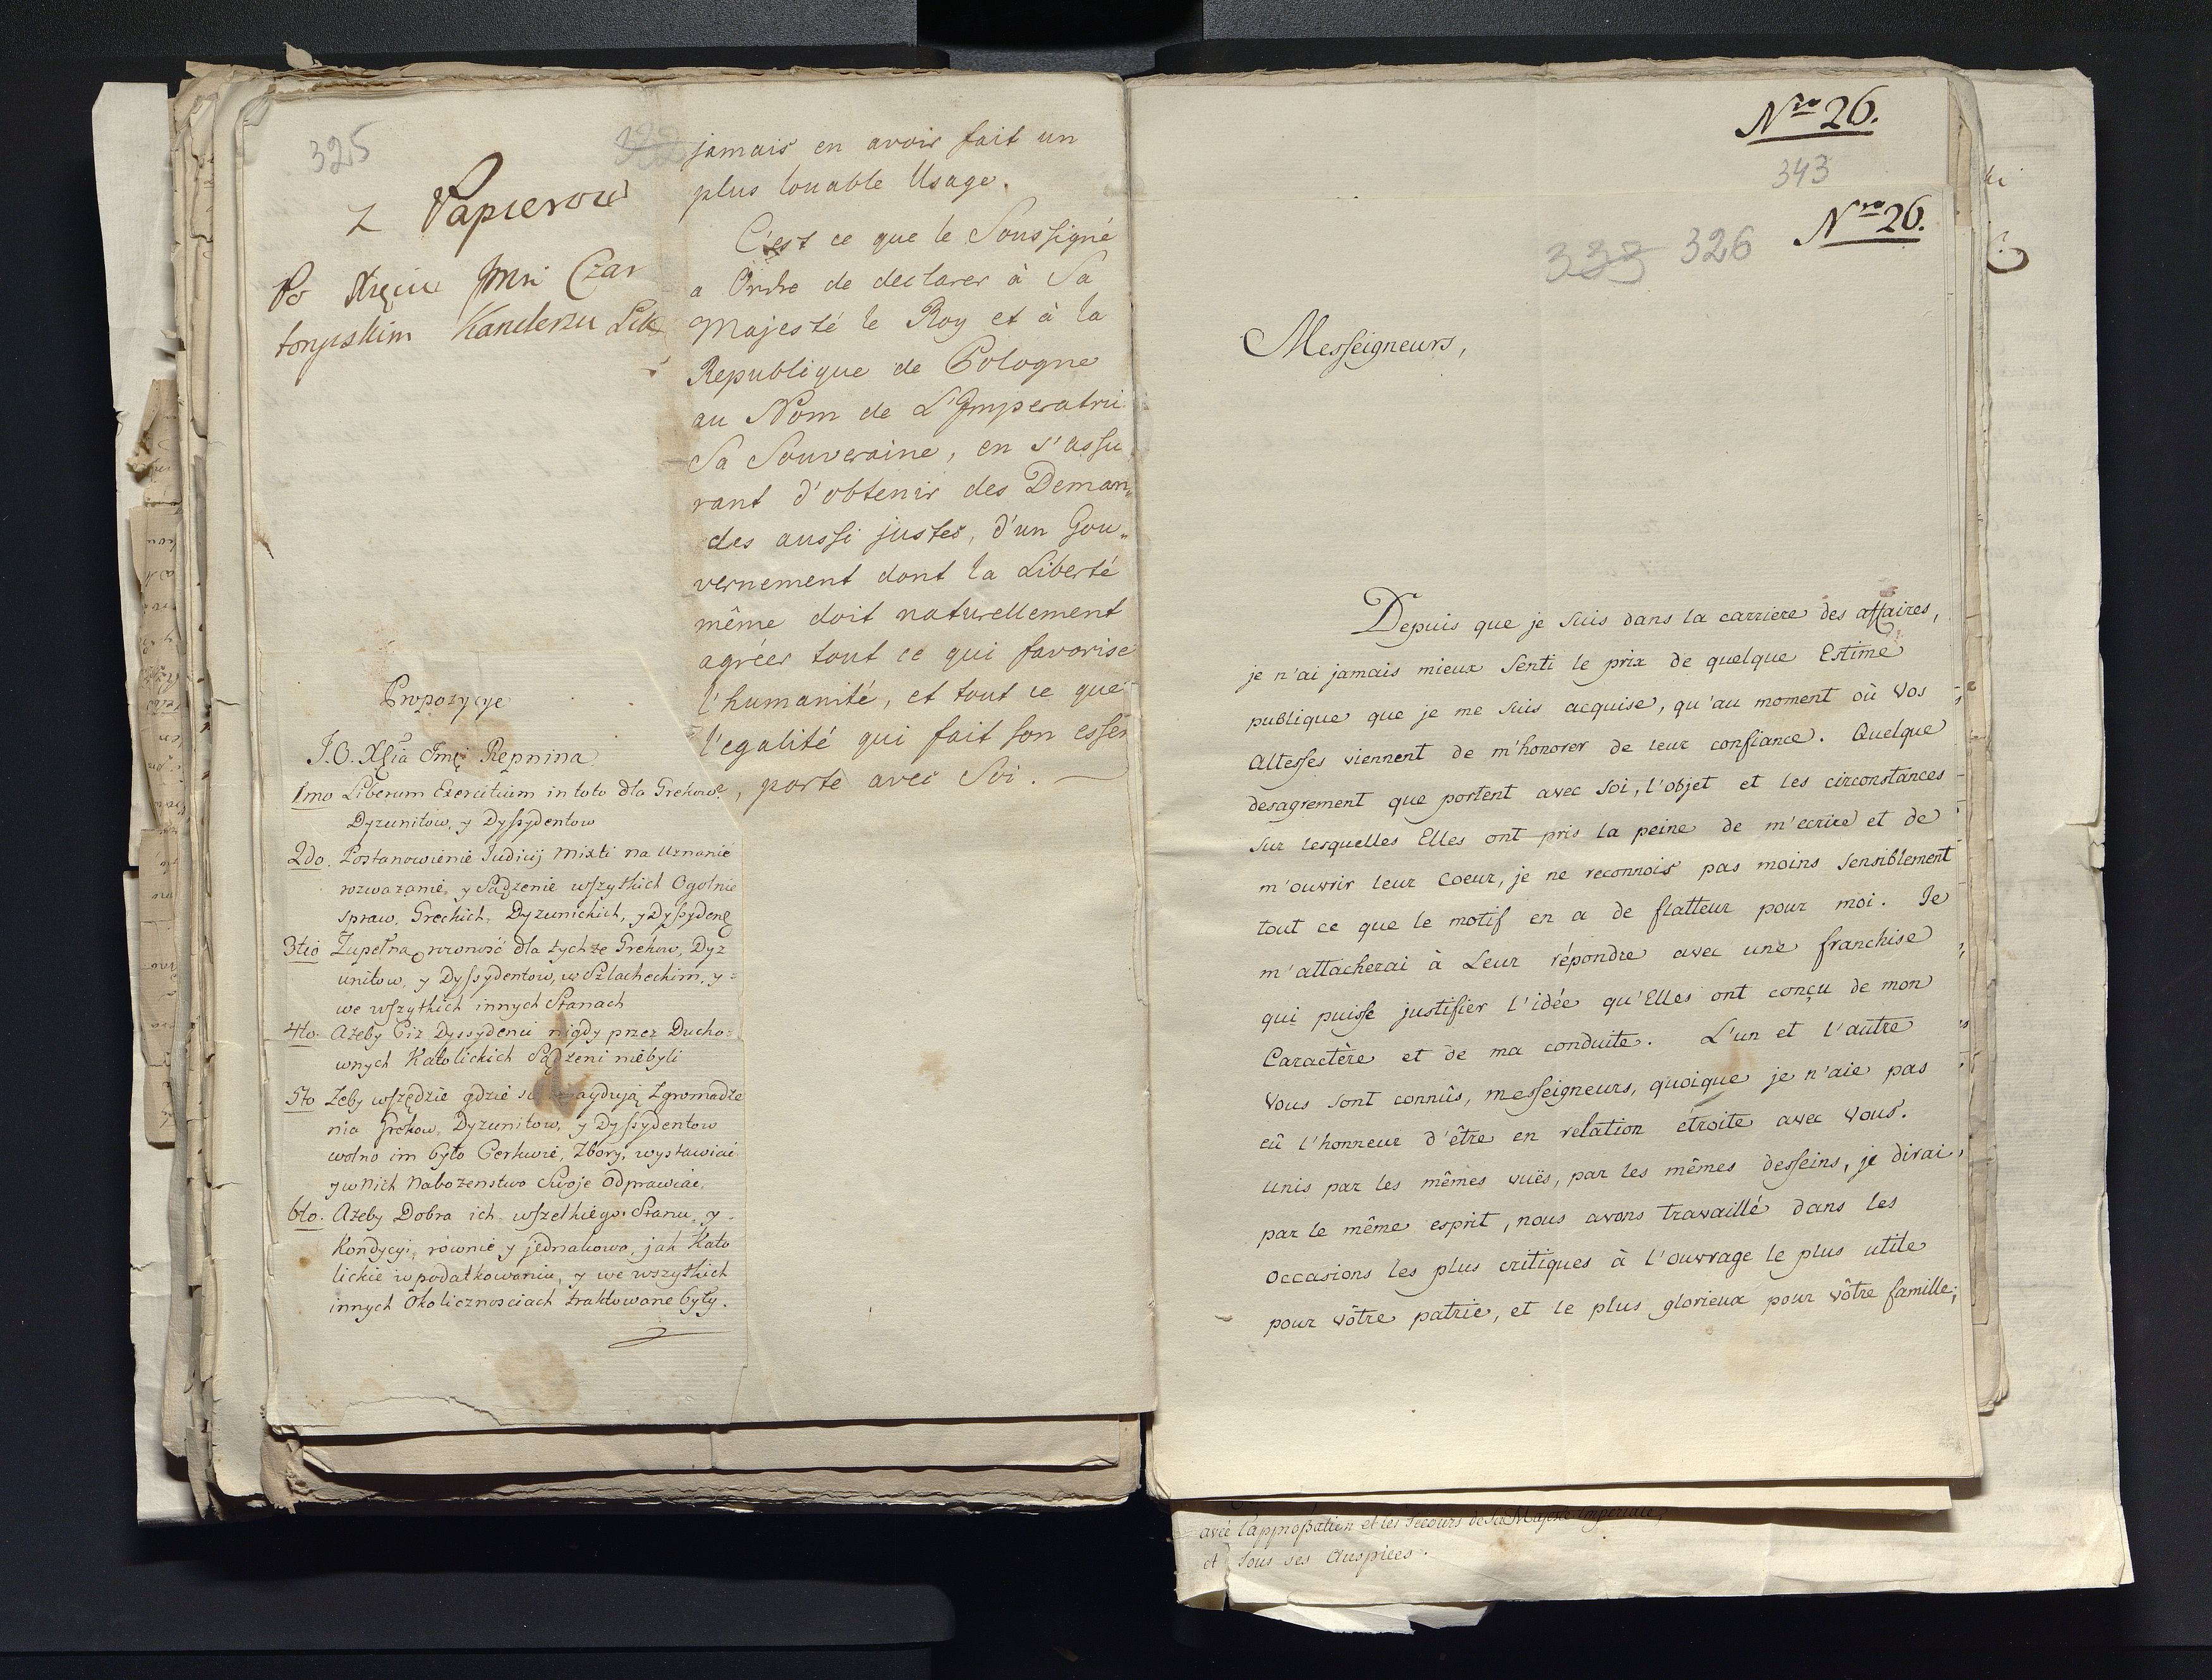 325
Z Papierow
Po Xięciu Jmci Czar
toryskim Kanclerzu Litt
jamais en avoir fait un
plus louable Usage.
C'est ce que le Soussigné
a Ordre de declarer à Sa
Majesté le Roy et à la
Republique de Pologne
au Nom de L'Imperatri
Sa Souveraine, en s'assu
rant d'obtenir des Deman„
des aussi justes, d'un Gou„
vernement dont la Liberté
même doit naturellement
agréer tout ce qui favorise
l'humanité, et tout ce que
l'egalité qui fait son essen
, porte avec Soi.
Propozycye
J.O. Xcia Jmci Repnina
1mo Liberum Exercitium in toto dla Grekow,
Dyzunitow, y Dyssydentow
2do. Postanowienie Judicij Mixti na Uznanie
rozwazanie, y Sądzenie wszytkich Ogolnie
spraw, Greckich, Dyzunickich, y Dyssyden
3tio Zupełna rowność dla tychże Grekow, Dyz
unitow, y Dyssydentow, w Szlacheckim, y=
we wszytkich innych Stanach
4to. Ażeby Ciż Dyssydenci nigdy przez Ducho=
wnych Katolickich Sądzeni niebyli
5to Żeby wszędzie gdzie się znaydują Zgromadze
nia Grekow, Dyzunitow, y Dyssydentow
wolno im było Cerkwie, Zbory, wystawiać
y w nich Nabożenstwo Swoje Odprawiac.
6to. Ażeby Dobra ich wszelkiego Stanu, y
Kondycyi, rownie y jednakowo, jak Kato
lickie w podatkowaniu, y we wszytkich
innych Okolicznosciach traktowane były.
Nro 26.
343
Nro 26.
333 326
Messeigneurs,
Depuis que je suis dans la carriere des affaires,
je n'ai jamais mieux Senti le prix de quelque Estime
publique que je me suis acquise, qu'au moment où Vos
Altesses viennent de m'honorer de leur confiance. Quelque
desagrement que portent avec Soi, l'objet et les circonstances
sur lesquelles Elles ont pris la peine de m'ecrire et de
m'ouvrir leur Coeur, je ne reconnois pas moins sensiblement
tout ce que le motif en a de flatteur pour moi. Je
m'attacherai à Leur répondre avec une franchise
qui puisse justifier l'idée qu'Elles ont conçu de mon
Caractère et de ma conduite. L'un et l'autre
Vous sont connûs, messeigneurs, quoique je n'aie pas
eû l'honneur d'être en relation étroite avec Vous.
Unis par les mêmes vuës, par les mêmes desseins, je dirai
par le même esprit, nous avons travaillé dans les
Occasions les plus critiques à l'ouvrage le plus utile
pour vôtre patrie, et le plus glorieux pour vôtre famille;
avec l'approbation et les Secours de Sa Majesté Imperiale,
et sous ses Auspices.